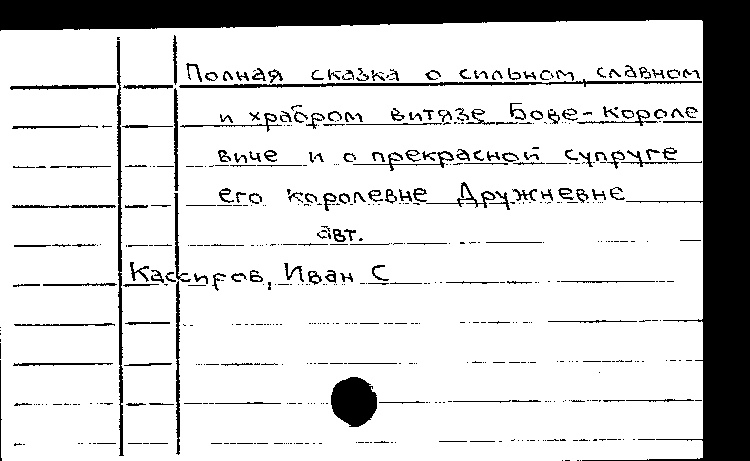 Полная сказка о сильном, славном
и храбром витязе Бове-короле
виче и о прекрасной супруге
его королевне Дружневне
авт.
Кассиров, Иван С